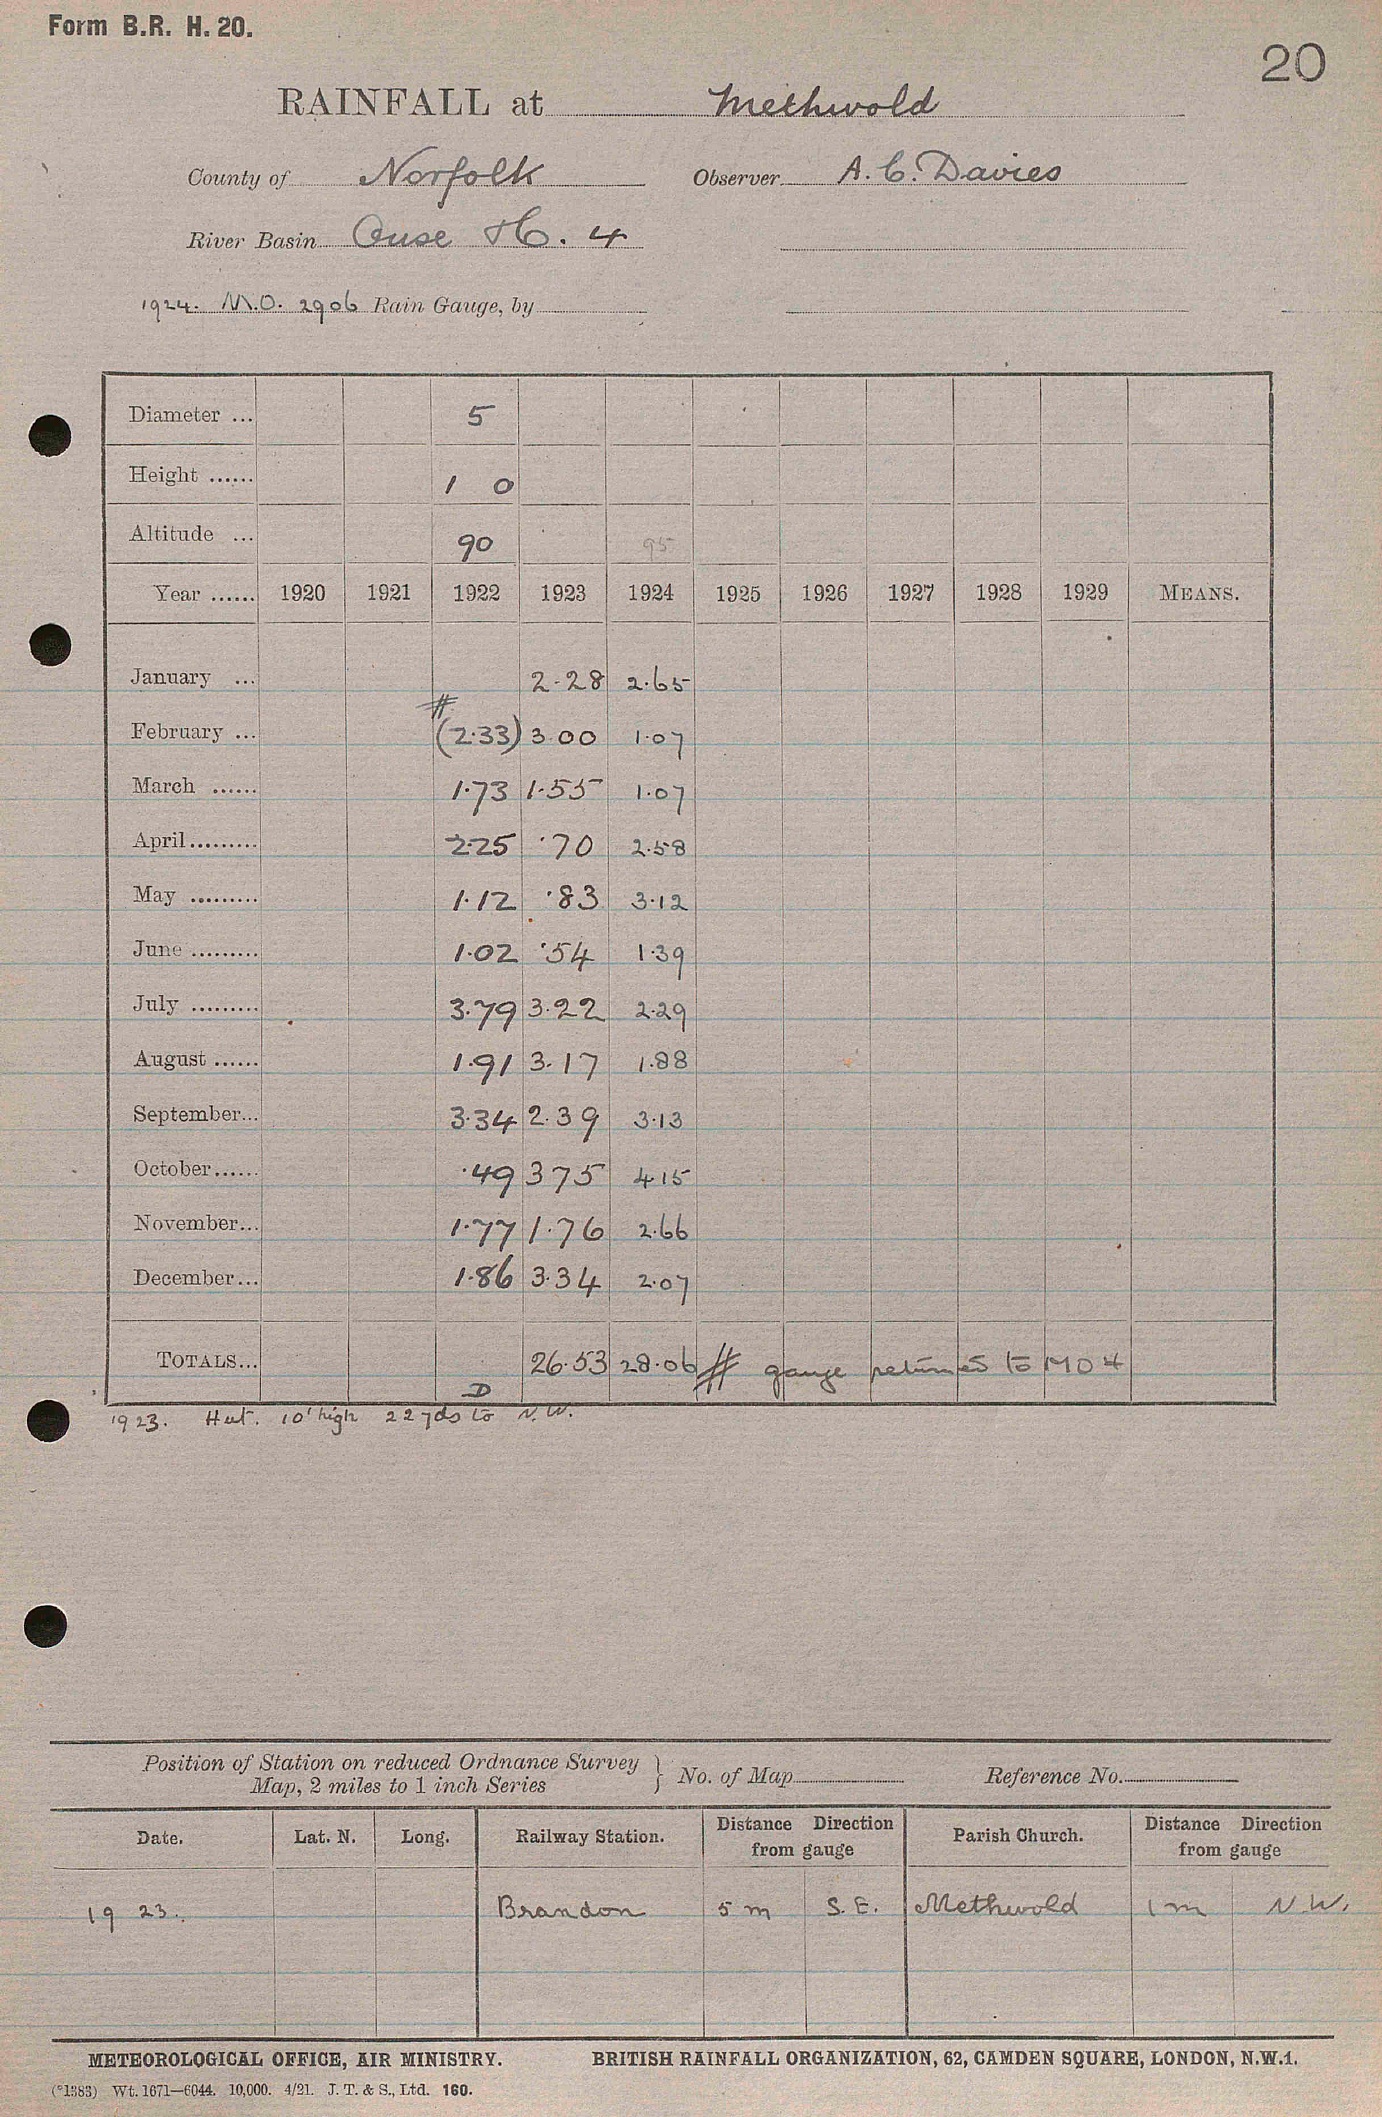 Form B.R. H. 20.
20
RAINFALL at Methwold
County of Norfolk Observer A. C. Davies
River Basin Ouse H. 4
1924. M.O. 2906 Rain Gauge, by
Diameter ... 5
Height ...... 1 0
Altitude ... 90 95
Year ...... 1920 1921 1922 1923 1924 1925 1926 1927 1928 1929 MEANS.
January ... 2.28 2.65
#
February ... (2.33) 3.00 1.07
March ...... 1.73 1.55 1.07
April......... 2.25 .70 2.58
May ......... 1.12 .83 3.12
June ......... 1.02 .54 1.39
July ......... 3.79 3.22 2.29
August ...... 1.91 3.17 1.88
September... 3.34 2.39 3.13
October...... .49 375 4.15
November... 1.77 1.76 2.66
December... 1.86 3.34 2.07
TOTALS... 26.53 28.06 # gauge returned to MO4
D
1923. Hut. 10' high 22 yds to N.W.
Position of Station on reduced Ordnance Survey
Map, 2 miles to 1 inch Series } No. of Map Reference No.
Date. Lat. N. Long. Railway Station. Distance Direction from gauge Parish Church. Distance Direction from gauge
1923. Brandon 5 m S.E. Methwold 1 m N.W.
METEOROLOGICAL OFFICE, AIR MINISTRY. BRITISH RAINFALL ORGANIZATION, 62, CAMDEN SQUARE, LONDON, N.W.1.
(*1383) Wt. 1671—6044. 10,000. 4/21. J. T. & S., Ltd. 160.